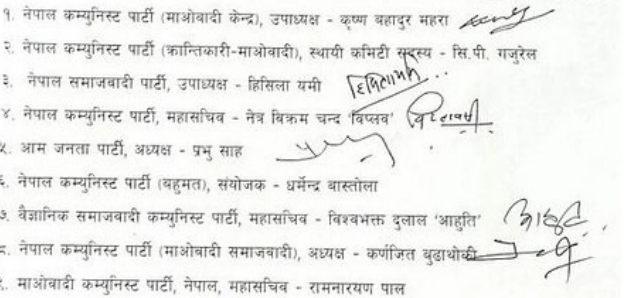 १. नेपाल कम्युनिस्ट पार्टी (माओवादी केन्द्र), उपाध्यक्ष - कृष्ण बहादुर महरा
२. नेपाल कम्युनिस्ट पार्टी (क्रान्तिकारी-माओवादी), स्थायी कमिटी सदस्य - सि.पी. गजुरेल
३. नेपाल समाजवादी पार्टी, उपाध्यक्ष - हिसिला यमी
४. नेपाल कम्युनिस्ट पार्टी, महासचिव - नेत्र विक्रम चन्द 'विप्लव'
५. आम जनता पार्टी, अध्यक्ष - प्रभु साह
६. नेपाल कम्युनिस्ट पार्टी (बहुमत), संयोजक - धर्मेन्द्र बास्तोला
७. वैज्ञानिक समाजवादी कम्युनिस्ट पार्टी, महासचिव - विश्वभक्त दुलाल 'आहुति' आहुति
८. नेपाल कम्युनिस्ट पार्टी (माओवादी समाजवादी), अध्यक्ष - कर्णजित बुढाथोकी
. माओवादी कम्युनिस्ट पार्टी, नेपाल, महासचिव - रामनारयण पाल